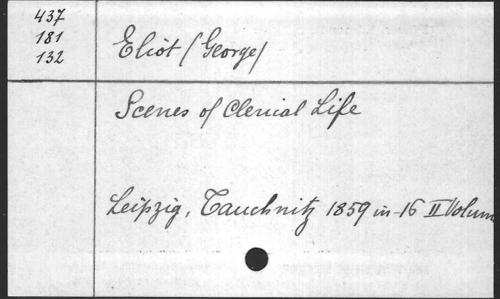 437
181
132
Eliot (George)
Scenes of Clerical Life
Leipzig, Tauchnitz 1859 in-16 II Volum